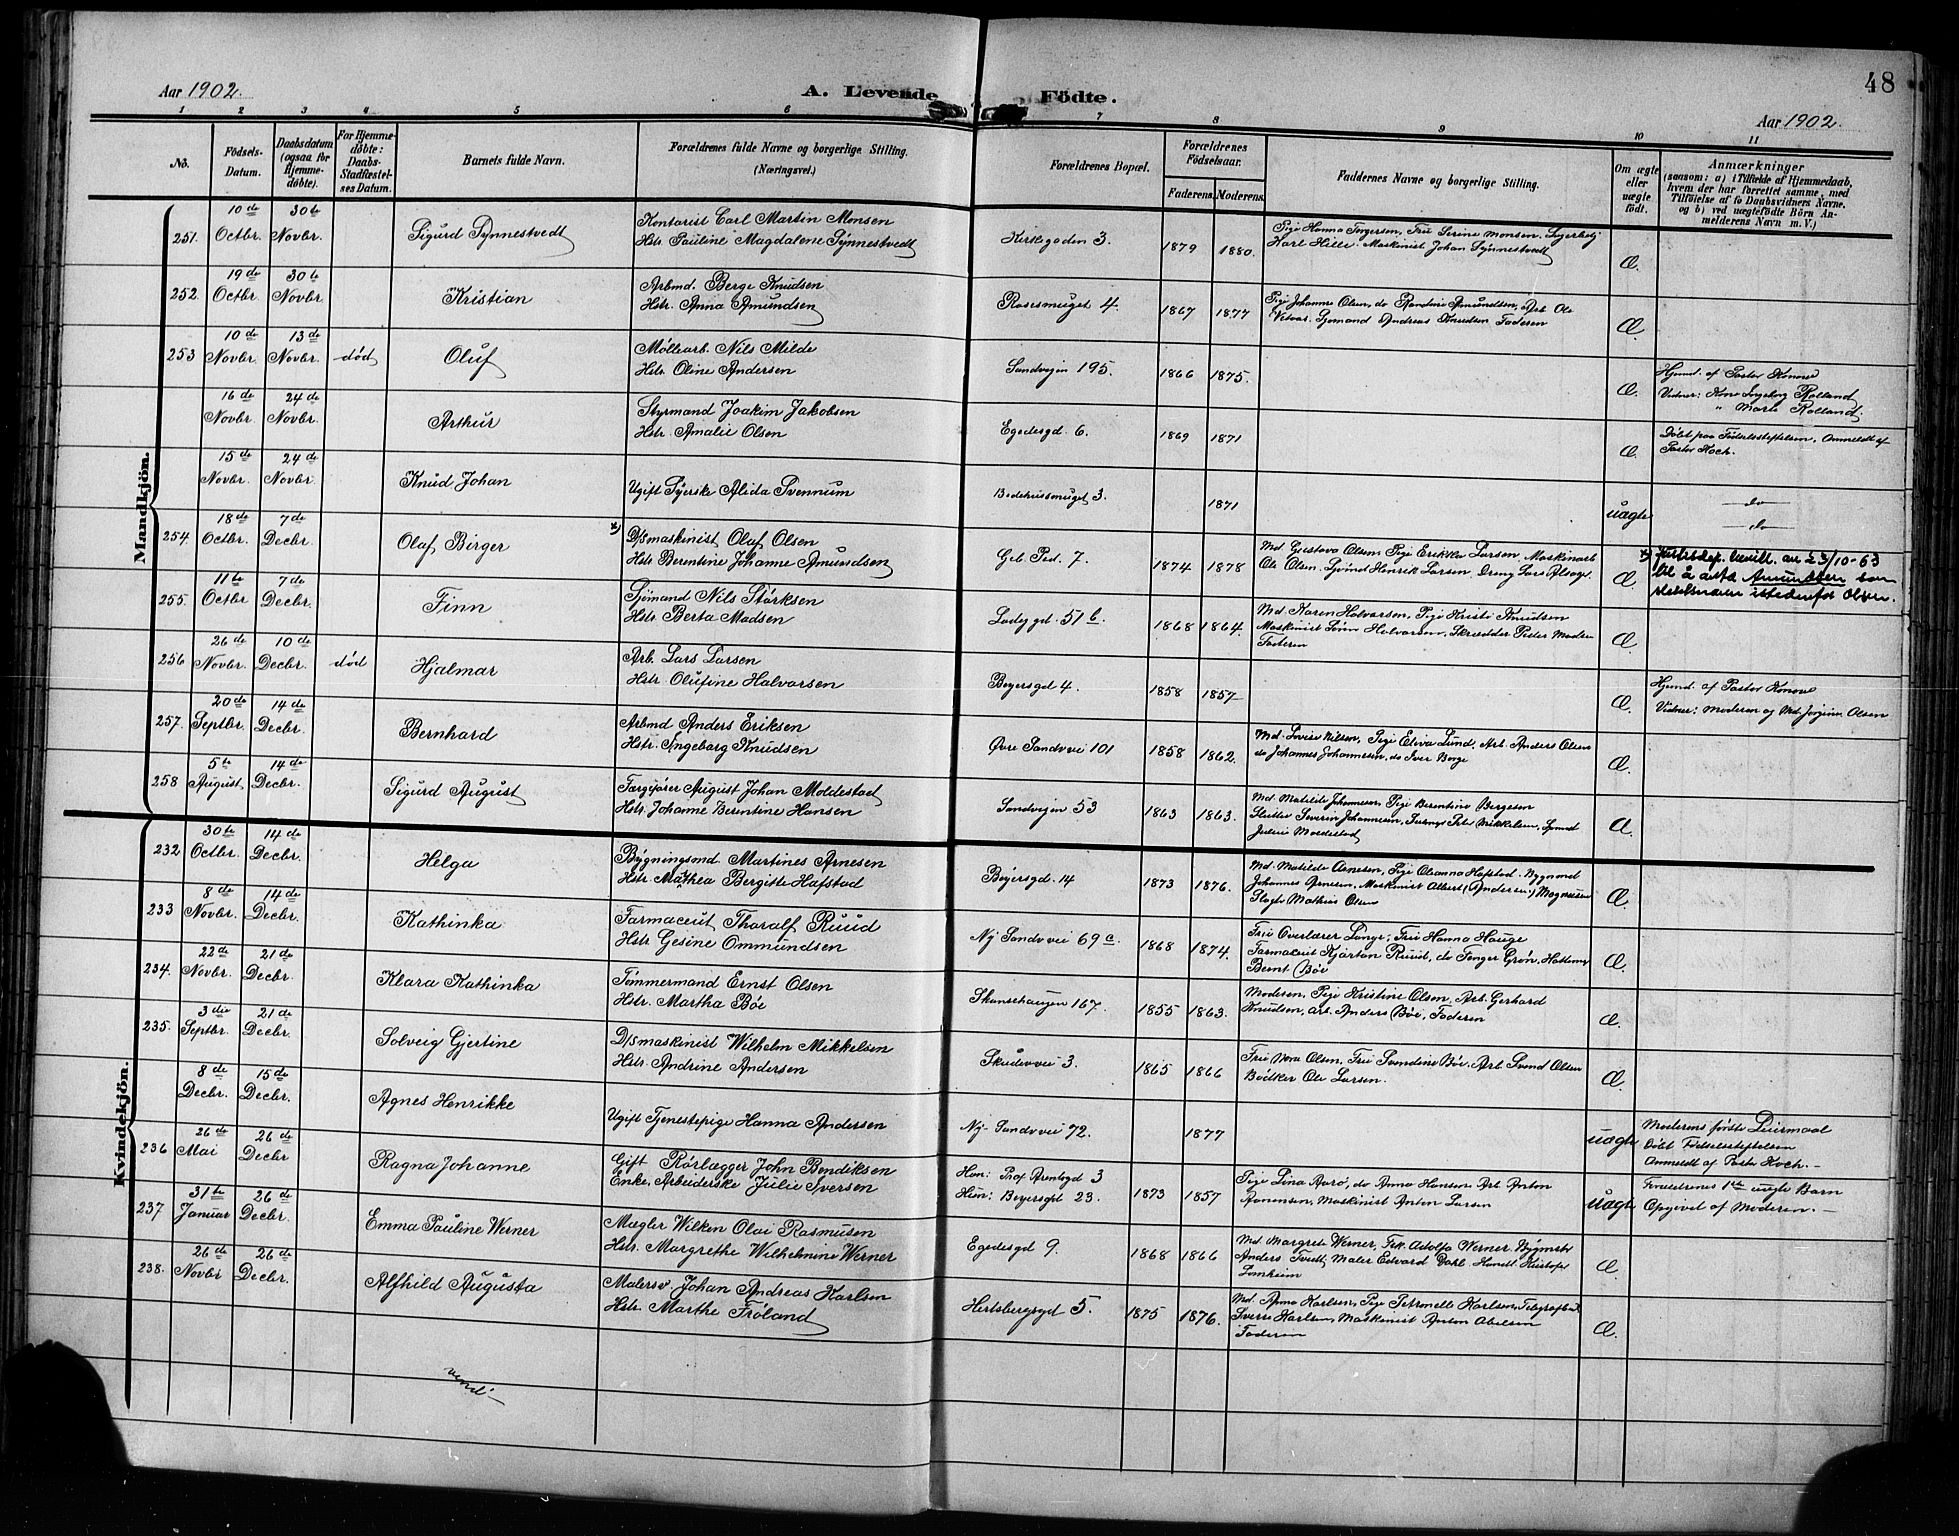 48
Aar 1902.
A. Levende Födte.
Aar 1902.
1 2 3 4 5 6 7 8 9 10 11
No.
Födsels-Datum.
Daabsdatum (ogsaa for Hjemme-döbte).
For Hjemme-döbte: Daabs-Stadfæstel-ses Datum.
Barnets fulde Navn.
Forældrenes fulde Navne og borgerlige Stilling. (Næringsvei.)
Forældrenes Bopæl.
Forældrenes Födselsaar.
Faderens. Moderens.
Faddernes Navne og borgerlige Stilling.
Om ægte eller uægte födt.
Anmærkninger
(saasom: a) i Tilfælde af Hjemmedaab,
hvem der har forrettet samme, med
Tilföielse af to Daabsvidners Navne,
og b) ved uægtefödte Börn An-
melderens Navn m. V.)
Mandkjön.
251. 10de Octbr. 30te Novbr. Sigurd Synnestvedt
Kontorist Carl Martin Monsen
Hstr. Pauline Magdalene Synnestvedt
Kirkegaden 3. 1879 1880.
Pige Hanna Torgersen, Frü Serine Monsen,
Karl Hille. Maskinist Johan Synnestvedt
Æ
252. 19de Octbr. 30te Novbr. Kristian
Arbmd. Berge Knudsen
Hstr. Anna Amundsen
Rosesmuget 4. 1867 1877
Pige Johanne Olsen, do Randine Amundsen, Arb. Ole
Sjømand Andreas Knudsen Faderen
Æ
253 10de Novbr. 13de Novbr. død Oluf
Møllearb. Nils Milde
Hstr. Oline Andersen
Sandvejen 195. 1866 1875.
Æ.
Hjmd. af Pastor Konow
Vidner: Kone Ingeborg Rolland
" Marie Rolland.
16de Novbr. 24de Novbr. Arthur
Styrmand Joakim Jakobsen
Hstr. Amalie Olsen
Egedesgd. 6. 1869 1871
Æ.
Døbt paa Födselsstiftelsen, Anmeldt af
Pastor Koch.
15de Novbr. 24de Novbr. Knud Johan
Ugift Syerske Alida Svennum
Bedehussmuget 3. 1871
uægte
do
do
254. 18de Octbr. 7de Decbr. Olaf Birger
x) D/smaskinist Olaf Olsen
Hstr. Berentine Johanne Amundsen
Geb. Ped. 7. 1874 1878
Md. Gustava Olsen, Pige Erikka Larsen, Maskinarb
Ole Olsen, Sjømd Henrik Larsen, Dreng Lars
Æ
x) Justisdep. bevilt. av 23/10-63
til å anta Amundsen som
slektsnavn istedenfor Olsen.
255. 11te Octbr 7de Decbr. Finn
Sjömand Nils Størksen
Hstr. Berta Madsen
Ladegd. 51 b. 1868 1864.
Md. Karen Halvorsen, Pige Kristi Knudsen
Maskinist Halvorsen, Skrædder Peder Madsen
Faderen
Æ
256 26de Novbr. 10de Decbr. død Hjalmar
Arb. Lars Larsen
Hstr. Olufine Halvorsen
Beyersgd 4. 1858 1857
Æ.
Hjmd. af Pastor Konow
Vidner: Moderen og Md. Jørgine Olsen
257. 20de Septbr. 14de Decbr. Bernhard
Arbmd Anders Eriksen
Hstr. Ingeborg Knudsen
Øvre Sandvei 101 1858 1862.
Md. Lovise Nilsen, Pige Elina Lund, Arb. Anders Olsen
do Johannes Johannesen, do Iver Berge
Æ.
258 5te August 14de Decbr. Sigurd August
Fargejører August Johan Moldestad
Hstr. Johanne Berentine Hansen
Sandvejen 53 1863 1863.
Md. Matilde Johannesen, Pige Berentine Bergesen
Severin Johannesen, Peter Mikkelsen, Sjømd
Julius Moldestad
Æ.
Kvindekjön.
232 30te Octbr. 14de Decbr. Helga
Bygningsmd Martines Arnesen
Hstr. Mathea Bergitte Hafstad
Beyersgd. 14 1873 1876.
Md. Matilde Arnesen, Pige Olianna Hafstad. Bygmmd
Johannes Arnesen, Maskinist Albert (Andersen) Magnusen
Mathias Olsen
Æ.
233 8de Novbr. 14de Decbr. Kathinka
Farmaceut Thoralf Ruud
Hstr Gesine Ommundsen
Ny Sandvvei 69 c. 1868 1874.
Frü Overlærer Frü Hanna Hauge
Farmaceut Kjartan Ruud, do Tenger Grøn,
Bernt Bøe
Æ.
234. 22de Novbr. 21de Decbr. Klara Kathinka
Tømmermand Ernst Olsen
Hstr. Martha Bøe
Skansehaugen 167. 1855 1863.
Moderen, Pige Kristine Olsen, Arb. Gerhard
Knudsen, Arb. Anders Bøe, Faderen
Æ.
235. 3die Septbr. 21de Decbr. Solveig Gjertine
D/smaskinist Wilhelm Mikkelsen
Hstr. Andrine Andersen
Skudevvei 3. 1865 1866
Frü Nora Olsen, Frü Bøe, Arb. Svend Olsen
Bødker Ole Larsen.
Æ.
8de Decbr. 15de Decbr. Agnes Henrikke
Ugift Tjenestepige Hanna Andersen
Ny Sandvvei 72. 1877
uægte
Moderens første Leiermaal
Døbt Födselsstiftelsen
Anmeldt af Pastor Koch.
236 26de Mai 26de Decbr. Ragna Johanne
Gift Rörlægger John Bendiksen
Enke, Arbeiderske Julie Iversen
Han: Prof. Arentsgd 3
Hun: Beyersgd 23. 1873 1857
Pige Lina Aarö, do Anna Hansen Arb. Anton
Aanensen, Maskinist Anton Larsen
uægte
Forældrenes 1ste uægte Barn
Opgivet af Moderen.
237 31te Januar 26de Decbr. Emma Pauline Werner
Mægler Wilken Olai Rasmusen
Hstr. Margrethe Wilhelmine Werner
Egedesgd 9. 1868 1866
Md. Margrete Werner, Frk. Adolfa Werner Bygmstr
Anders Tvedt, Maler Edvard Dahl. Handl. Kristofer
Lomheim
Æ.
238. 26de Novbr 26de Decbr. Alfhild Augusta
Malersv. Johan Andreas Karlsen
Hstr. Marthe Fröland
Hertsbergsgd 5. 1875 1876.
Md. Anna Karlsen, Pige Petronelle Karlsen,
Sverre Karlsen, Maskinist Anton Abelsen
Faderen
Æ.
vend.